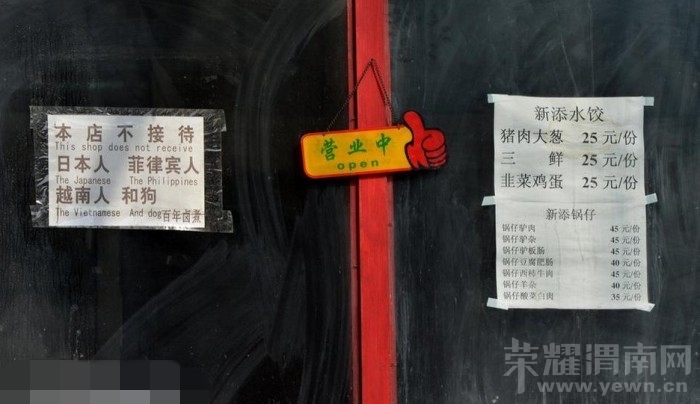 本店不接待
This shop does not receive
日本人 菲律宾人
The Japanese The Philippines
越南人 和狗
The Vietnamese And dog 百年卤煮
营业中
open
新添水饺
猪肉大葱 25 元/份
三 鲜 25 元/份
韭菜鸡蛋 25 元/份
新添锅仔
锅仔驴肉 45 元/份
锅仔驴杂 45 元/份
锅仔驴板肠 45 元/份
锅仔豆腐肥肠 40 元/份
锅仔西柿牛肉 45 元/份
锅仔羊杂 40 元/份
锅仔酸菜白肉 35 元/份
荣耀渭南网
www.yewn.cn